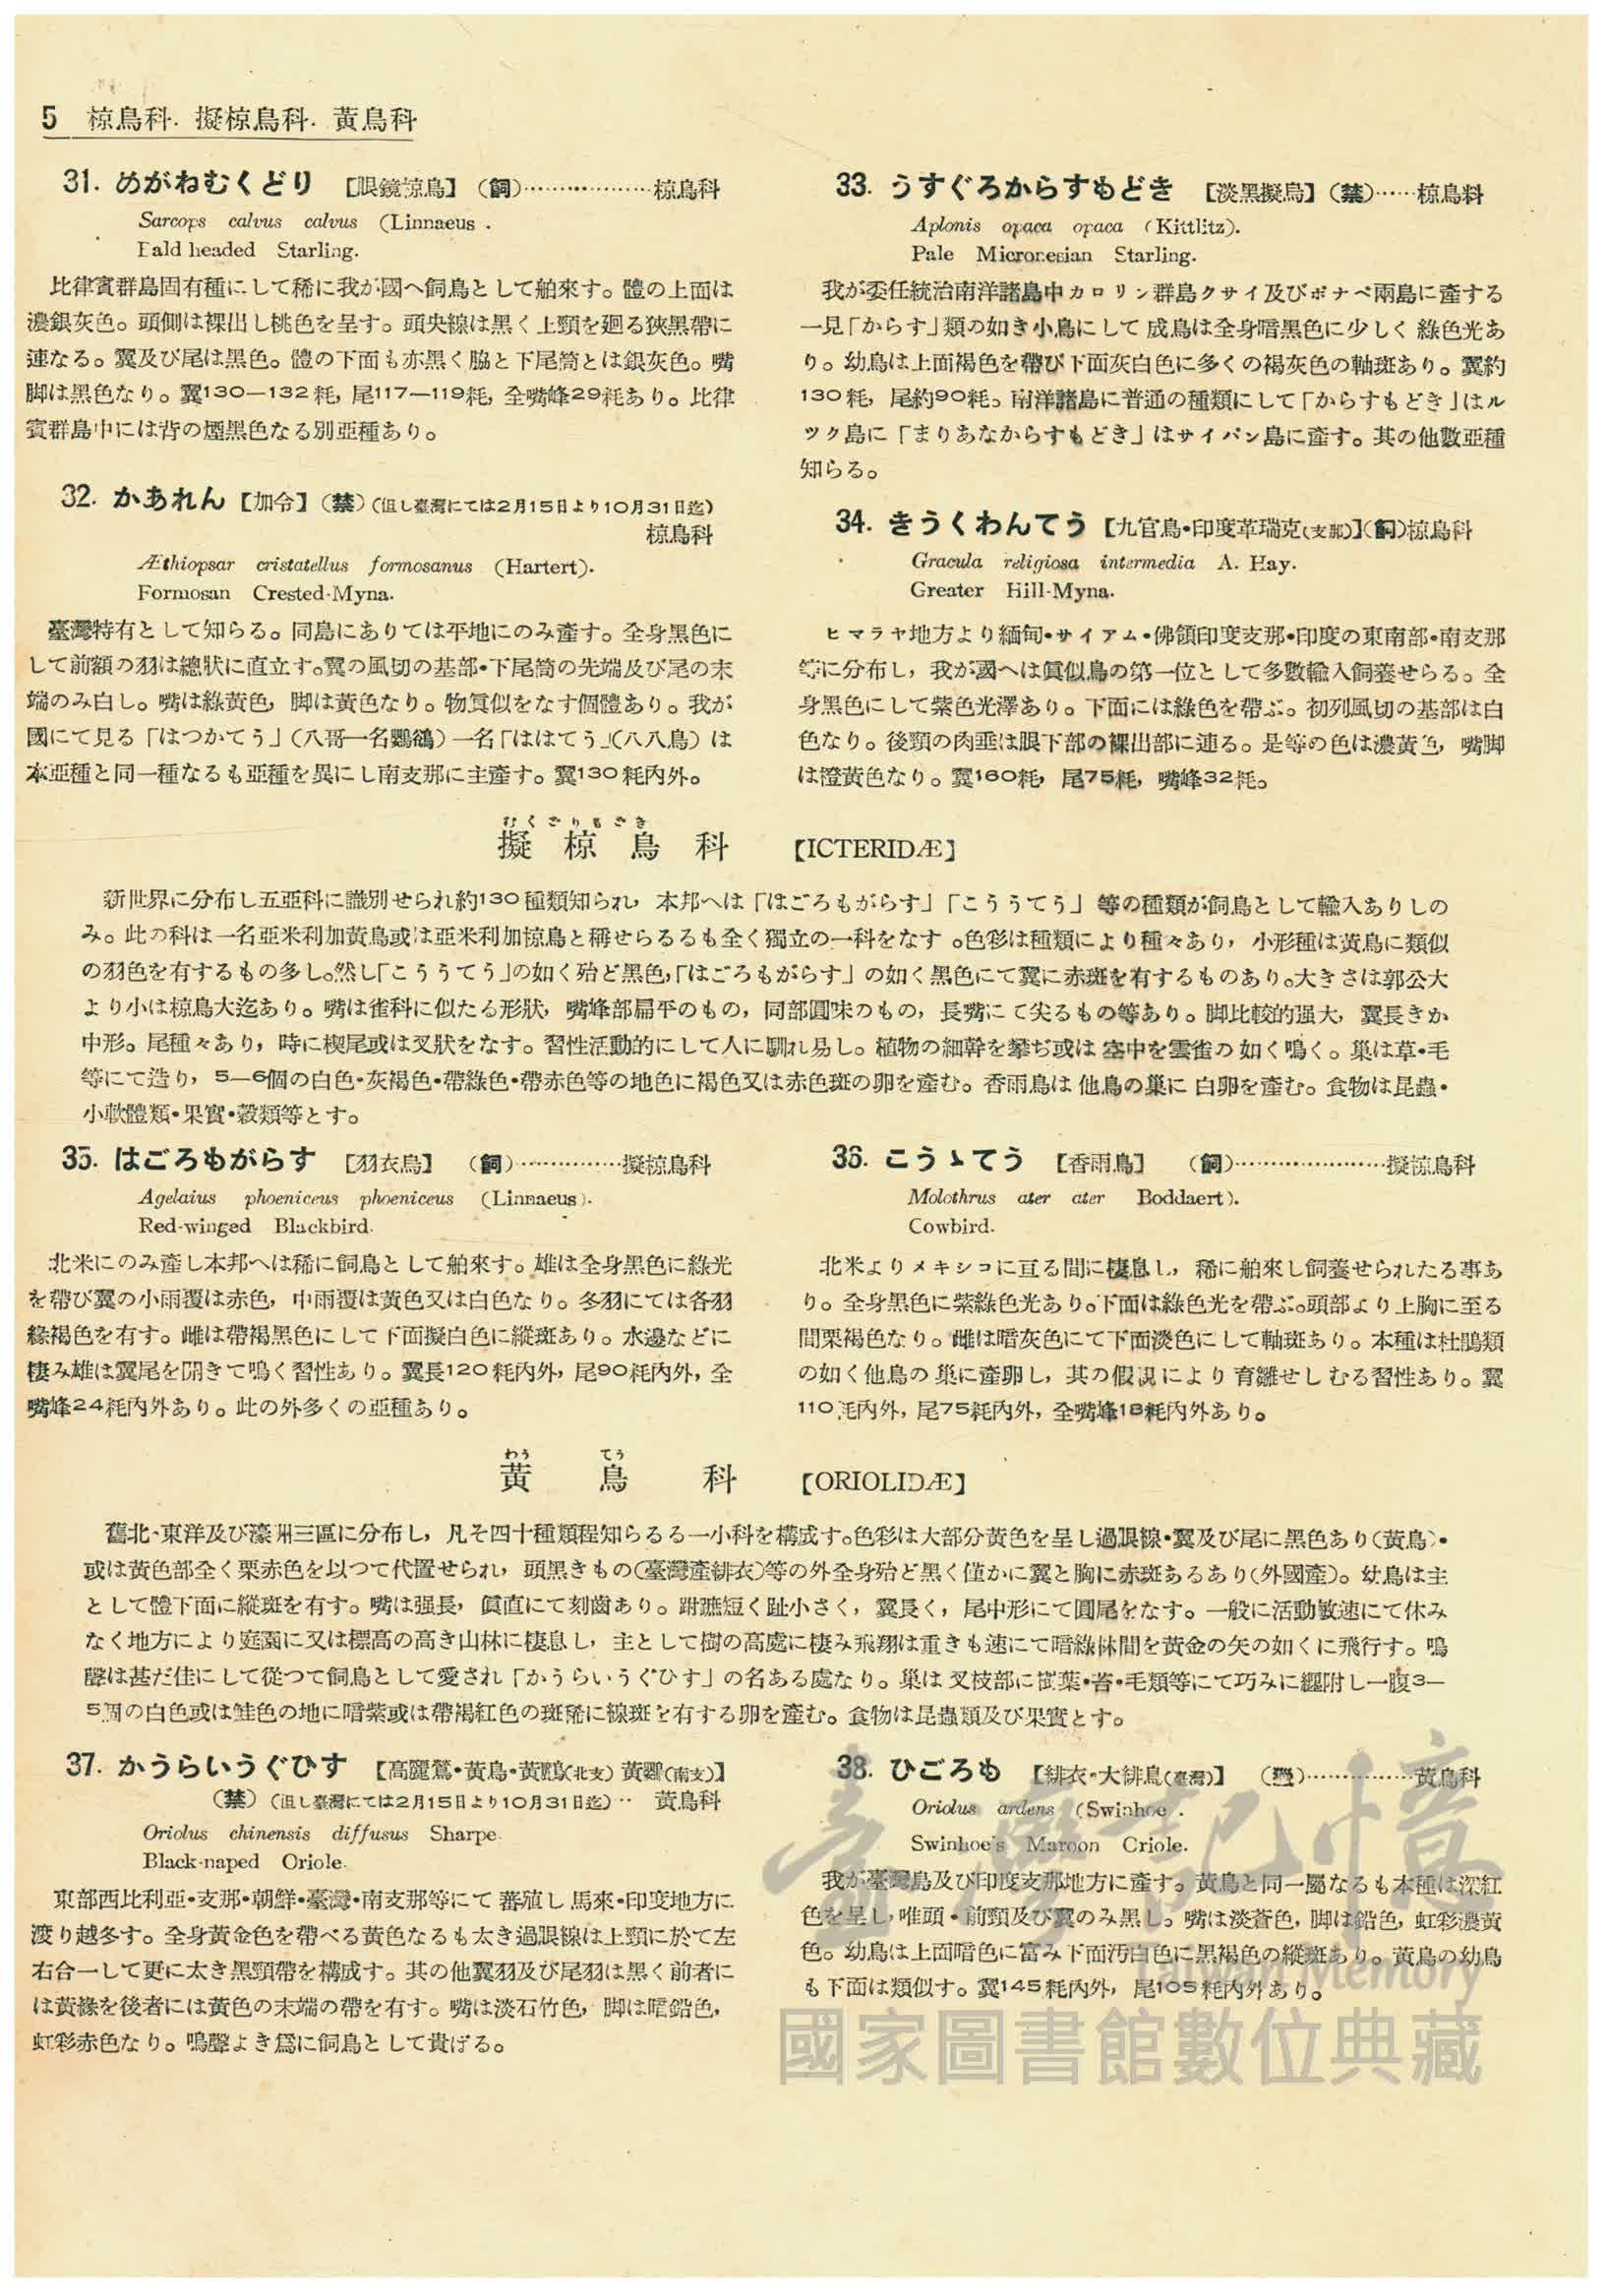 5 椋鳥科. 擬椋鳥科. 黃鳥科
31. めがねむくどり 【眼鏡椋鳥】（飼）………………椋鳥科
Sarcops calvus calvus (Linnaeus .
Bald headed Starling.
比律賓群島固有種にして稀に我が國へ飼鳥として舶來す。體の上面は
濃銀灰色。頭側は裸出し桃色を呈す。頭央線は黑く上頸を廻る狹黑帶に
連なる。翼及び尾は黑色。體の下面も亦黑く脇と下尾筒とは銀灰色。嘴
脚は黑色なり。翼130—132粍, 尾117—119粍, 全嘴峰29粍あり。比律
賓群島中には背の煙黑色なる別亞種あり。
32. かあれん【加令】（禁）（但し臺灣にては2月15日より10月31日迄）
椋鳥科
Æthiopsar cristatellus formosanus (Hartert).
Formosan Crested-Myna.
臺灣特有として知らる。同島にありては平地にのみ產す。全身黑色に
して前額の羽は總狀に直立す。翼の風切の基部・下尾筒の先端及び尾の末
端のみ白し。嘴は綠黃色, 脚は黃色なり。物眞似をなす個體あり。我が
國にて見る「はつかてう」（八哥一名鸚鵒）一名「ははてう」（八八鳥）は
本亞種と同一種なるも亞種を異にし南支那に主產す。翼130粍內外。
33. うすぐろからすもどき 【淡黑擬烏】（禁）……椋鳥科
Aplonis opaca opaca (Kittlitz).
Pale Micronesian Starling.
我が委任統治南洋諸島中カロリン群島クサイ及びポナペ兩島に產する
一見「からす」類の如き小鳥にして成鳥は全身暗黑色に少しく綠色光あ
り。幼鳥は上面褐色を帶び下面灰白色に多くの褐灰色の軸斑あり。翼約
130粍, 尾約90粍。南洋諸島に普通の種類にして「からすもどき」はル
ック島に「まりあなからすもどき」はサイパン島に產す。其の他數亞種
知らる。
34. きうくわんてう【九官鳥・印度革瑞克(支那)】（飼）椋鳥科
Gracula religiosa intermedia A. Hay.
Greater Hill-Myna.
ヒマラヤ地方より緬甸・サイアム・佛領印度支那・印度の東南部・南支那
等に分布し, 我が國へは眞似鳥の第一位として多數輸入飼養せらる。全
身黑色にして紫色光澤あり。下面には綠色を帶ぶ。初列風切の基部は白
色なり。後頸の肉垂は眼下部の裸出部に連る。是等の色は濃黃色, 嘴脚
は橙黃色なり。翼160粍, 尾75粍, 嘴峰32粍。
むくどりもどき
擬椋鳥科 【ICTERIDÆ】
新世界に分布し五亞科に識別せられ約130種類知られ, 本邦へは「はごろもがらす」「こううてう」等の種類が飼鳥として輸入ありしの
み。此の科は一名亞米利加黃鳥或は亞米利加椋鳥と稱せらるるも全く獨立の一科をなす。色彩は種類により種々あり, 小形種は黃鳥に類似
の羽色を有するもの多し。然し「こううてう」の如く殆ど黑色,「はごろもがらす」の如く黑色にて翼に赤斑を有するものあり。大きさは郭公大
より小は椋鳥大迄あり。嘴は雀科に似たる形狀, 嘴峰部扁平のもの, 同部圓味のもの, 長嘴にて尖るもの等あり。脚比較的强大, 翼長きか
中形。尾種々あり, 時に楔尾或は叉狀をなす。習性活動的にして人に馴れ易し。植物の細幹を攀ぢ或は空中を雲雀の如く鳴く。巢は草・毛
等にて造り, 5—6個の白色・灰褐色・帶綠色・帶赤色等の地色に褐色又は赤色斑の卵を產む。香雨鳥は他鳥の巢に白卵を產む。食物は昆蟲・
小軟體類・果實・穀類等とす。
35. はごろもがらす 【羽衣烏】 （飼）……………擬椋鳥科
Agelaius phoeniceus phoeniceus (Linnaeus).
Red-winged Blackbird.
北米にのみ產し本邦へは稀に飼鳥として舶來す。雄は全身黑色に綠光
を帶び翼の小雨覆は赤色, 中雨覆は黃色又は白色なり。冬羽にては各羽
緣褐色を有す。雌は帶褐黑色にして下面擬白色に縱斑あり。水邊などに
棲み雄は翼尾を開きて鳴く習性あり。翼長120粍內外, 尾90粍內外, 全
嘴峰24粍內外あり。此の外多くの亞種あり。
36. こうゝてう 【香雨鳥】 （飼）…………………擬椋鳥科
Molothrus ater ater Boddaert).
Cowbird.
北米よりメキシコに亘る間に棲息し, 稀に舶來し飼養せられたる事あ
り。全身黑色に紫綠色光あり。下面は綠色光を帶ぶ。頭部より上胸に至る
間栗褐色なり。雌は暗灰色にて下面淡色にして軸斑あり。本種は杜鵑類
の如く他鳥の巢に產卵し, 其の假親により育雛せしむる習性あり。翼
110粍內外, 尾75粍內外, 全嘴峰18粍內外あり。
わう てう
黃鳥科 【ORIOLIDÆ】
舊北・東洋及び濠洲三區に分布し, 凡そ四十種類程知らるる一小科を構成す。色彩は大部分黃色を呈し過眼線・翼及び尾に黑色あり（黃鳥）・
或は黃色部全く栗赤色を以つて代置せられ, 頭黑きもの（臺灣產緋衣）等の外全身殆ど黑く僅かに翼と胸に赤斑あるあり（外國產）。幼鳥は主
として體下面に縱斑を有す。嘴は强長, 眞直にて刻齒あり。跗蹠短く趾小さく, 翼長く, 尾中形にて圓尾をなす。一般に活動敏速にて休み
なく地方により庭園に又は標高の高き山林に棲息し, 主として樹の高處に棲み飛翔は重きも速にて暗綠林間を黃金の矢の如くに飛行す。鳴
聲は甚だ佳にして從つて飼鳥として愛され「かうらいうぐひす」の名ある處なり。巢は叉枝部に樹葉・苔・毛類等にて巧みに纒附し一腹3—
5個の白色或は鮭色の地に暗紫或は帶褐紅色の斑稀に線斑を有する卵を產む。食物は昆蟲類及び果實とす。
37. かうらいうぐひす 【高麗鶯・黃鳥・黃鸝(北支) 黃鸝(南支)】
（禁）（但し臺灣にては2月15日より10月31日迄）‥ 黃鳥科
Oriolus chinensis diffusus Sharpe.
Black-naped Oriole.
東部西比利亞・支那・朝鮮・臺灣・南支那等にて蕃殖し馬來・印度地方に
渡り越冬す。全身黃金色を帶べる黃色なるも太き過眼線は上頸に於て左
右合一して更に太き黑頸帶を構成す。其の他翼羽及び尾羽は黑く前者に
は黃緣を後者には黃色の末端の帶を有す。嘴は淡石竹色, 脚は暗鉛色,
虹彩赤色なり。鳴聲よき爲に飼鳥として貴ばる。
38. ひごろも 【緋衣・大緋鳥(臺灣)】 ……………黃鳥科
Oriolus ardens (Swinhoe .
Swinhoe's Maroon Oriole.
我が臺灣島及び印度支那地方に產す。黃鳥と同一屬なるも本種は深紅
色を呈し, 唯頭・前頸及び翼のみ黑し。嘴は淡蒼色, 脚は鉛色, 虹彩濃黃
色。幼鳥は上面暗色に富み下面汚白色に黑褐色の縱斑あり。黃鳥の幼鳥
も下面は類似す。翼145粍內外, 尾105粍內外あり。
臺灣記憶
Taiwan Memory
國家圖書館數位典藏